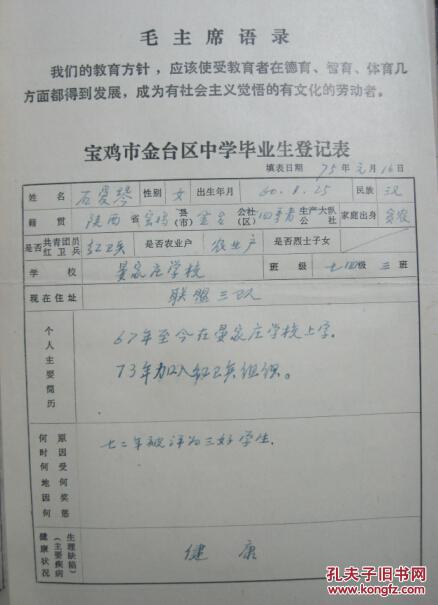 毛主席语录
我们的教育方针，应该使受教育者在德育、智育、体育几
方面都得到发展，成为有社会主义觉悟的有文化的劳动者。
宝鸡市金台区中学毕业生登记表
填表日期 75年元月16日
姓名 石爱琴 性别 女 出生年月 60.1.25 民族 汉
籍贯 陕西省宝鸡县(市)金台公社(区)四季青生产大队公社 家庭出身 贫农
是否共青团员红卫兵 红卫兵 是否农业户 农业户 是否烈士子女
学校 晏家庄学校 班级 七四级三班
现在住址 联盟三队
个人主要简历
67年至今在晏家庄学校上学.
73年加入红卫兵组织。
何时何地因何原因受何奖惩
七二年被评为三好学生.
健康状况（主要疾病生理缺陷） 健康
孔夫子旧书网